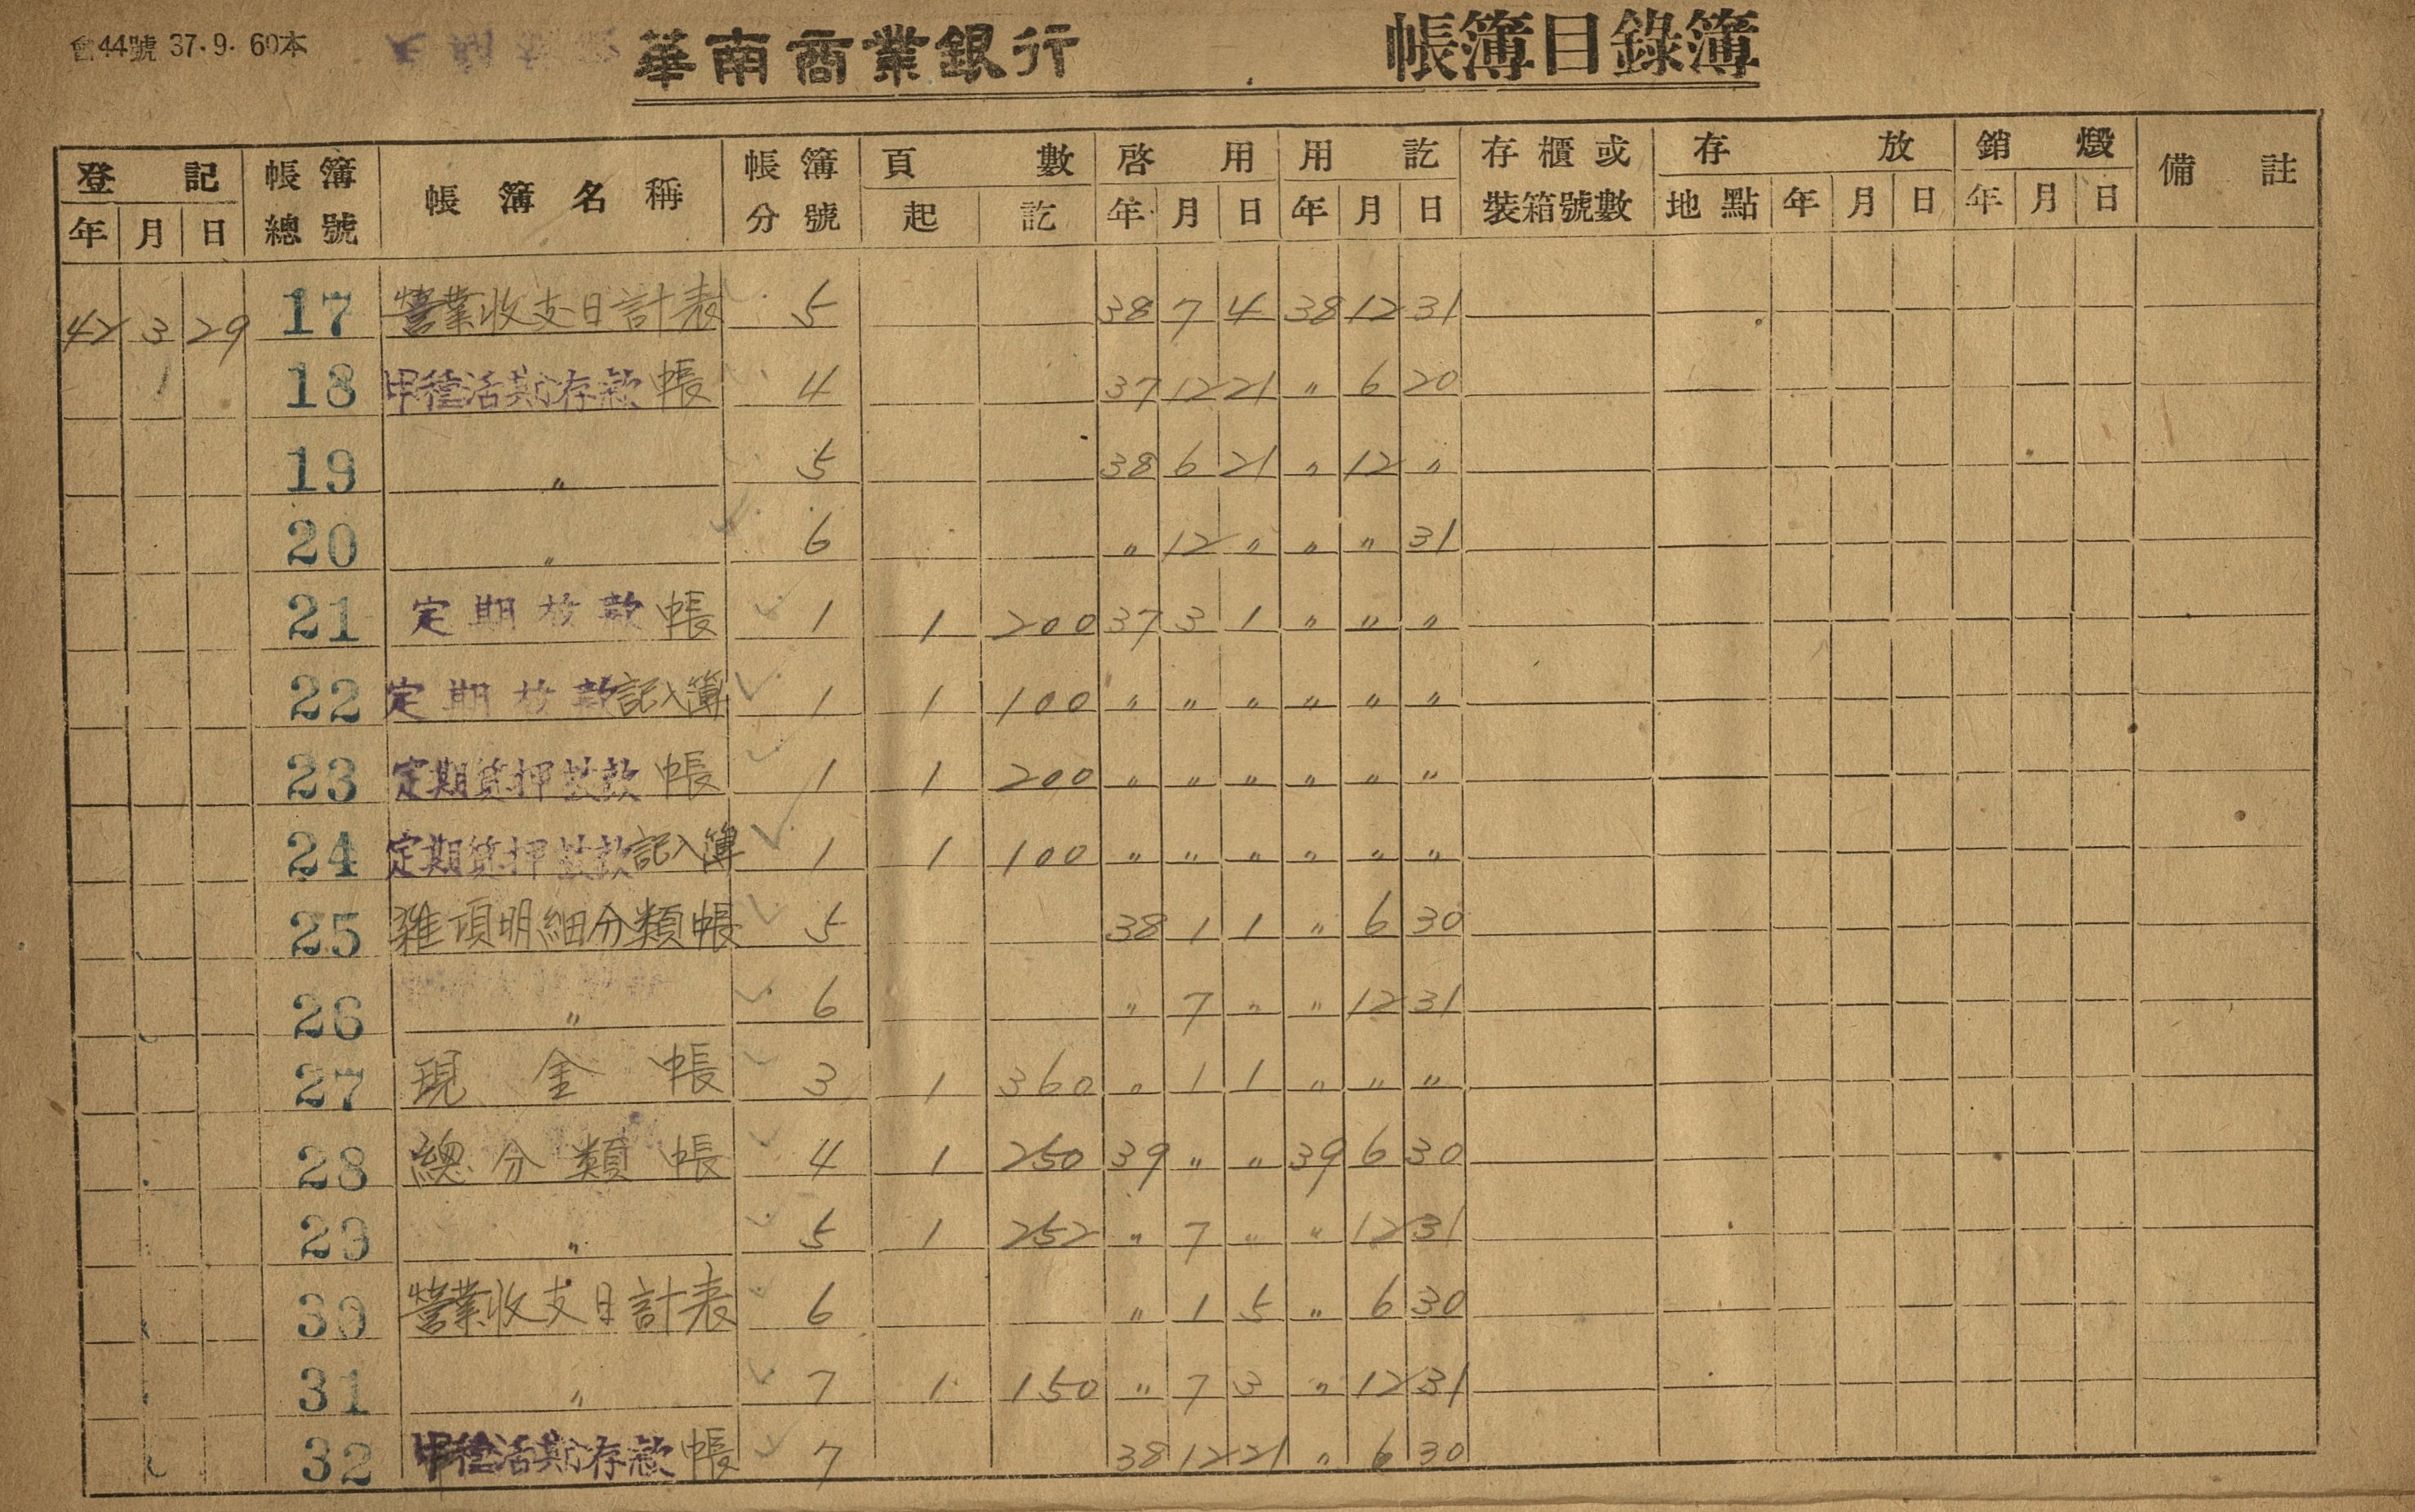 會44號 37.9. 60本
華南商業銀行 帳簿目錄簿
登記 帳簿總號 帳簿名稱 帳簿分號 頁數 啓用 用訖 存櫃或裝箱號數 存放 銷燬 備註
年 月 日 起 訖 年 月 日 年 月 日 地點 年 月 日 年 月 日
42 3 29 17 營業收支日計表 5 38 7 4 38 12 31
18 甲種活期存款帳 4 37 12 21 〃 6 20
19 〃 5 38 6 21 〃 12 〃
20 〃 6 〃 12 〃 〃 〃 31
21 定期放款帳 1 1 200 37 3 1 〃 〃 〃
22 定期放款記入簿 1 1 100 〃 〃 〃 〃 〃 〃
23 定期質押放款帳 1 1 200 〃 〃 〃 〃 〃 〃
24 定期質押放款記入簿 1 1 100 〃 〃 〃 〃 〃 〃
25 雜項明細分類帳 5 38 1 1 〃 6 30
26 〃 6 〃 7 〃 〃 12 31
27 現金帳 3 1 360 〃 1 1 〃 〃 〃
28 總分類帳 4 1 250 39 〃 〃 39 6 30
29 〃 5 1 252 〃 7 〃 〃 12 31
30 營業收支日計表 6 〃 1 5 〃 6 30
31 〃 7 1 150 〃 7 3 〃 12 31
32 甲種活期存款帳 7 38 12 21 〃 6 30